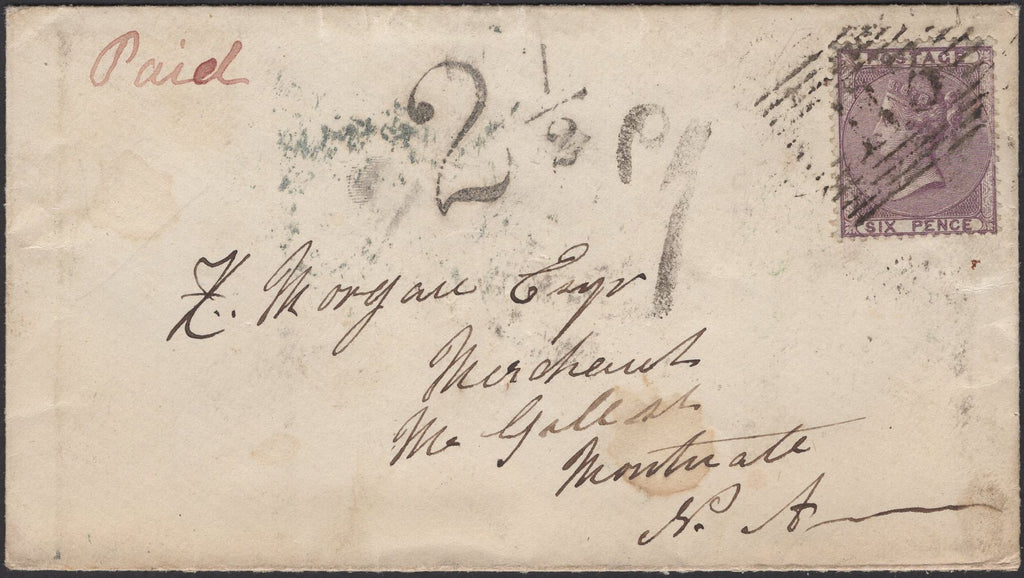 Paid
2 1/2
POSTAGE
SIX PENCE
Z. Morgan Esqr
Merchant
Mc Gill st
Montreale
N. A